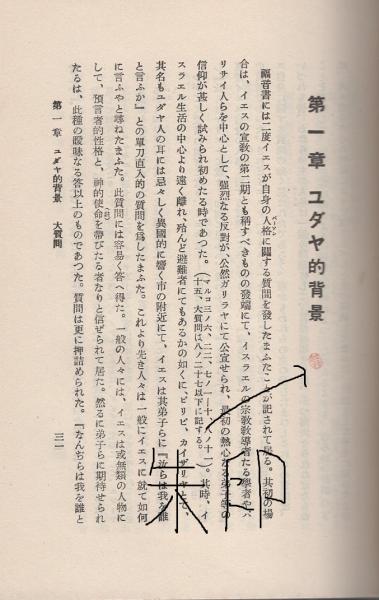 第一章　ユダヤ的背景
福音書には二度イエスが自身の人格に關する質問を發したまふたことが記されて居る。其初の場
パーソン
合は、イエスの宣敎の第二期とも稱すべきものの發端にて、イスラエルの宗敎敎導者たる學者やパ
リサイ人らを中心として、强烈なる反對が、公然ガリラヤにて公宣せられ、最初の熱心なる弟子等の
信仰が甚しく試みられ初めたる時であつた。(マルコ三ノ六、二二、七ノ一―十、八ノ十一
十五、大質問は八ノ二十七以下に記する。)其時、イ
スラエル生活の中心より遠く離れ、殆んど避難者にてもあるかの如くに、ピリピ、カイザリヤとて、
其名もユダヤ人の耳には忌々しく異國的に響く市の附近にて、イエスは其弟子らに『汝らは我を誰
と言ふか』との單刀直入的の質問を爲したまふた。これより先き人々は一般にイエスに就て如何
に言ふやと尋ねたまふた。此質問には容易く答へ得た。一般の人々には、イエスは或無類の人物に
して、預言者的性格と、神的使命を帶びたる者なりと信ぜられて居た。然るに弟子らに期待せられ
たるは、此種の曖昧なる答以上のものであつた。質問は更に押詰められた。『なんぢらは我を誰と
第一章　ユダヤ的背景　大質問
三一
朱印